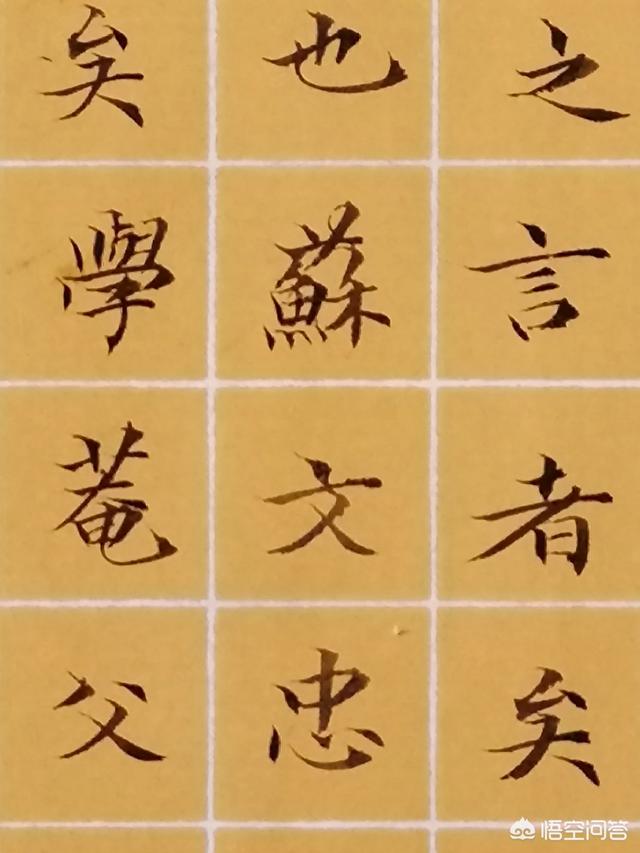 之言者矣
也蘇文忠
矣學菴父
悟空问答